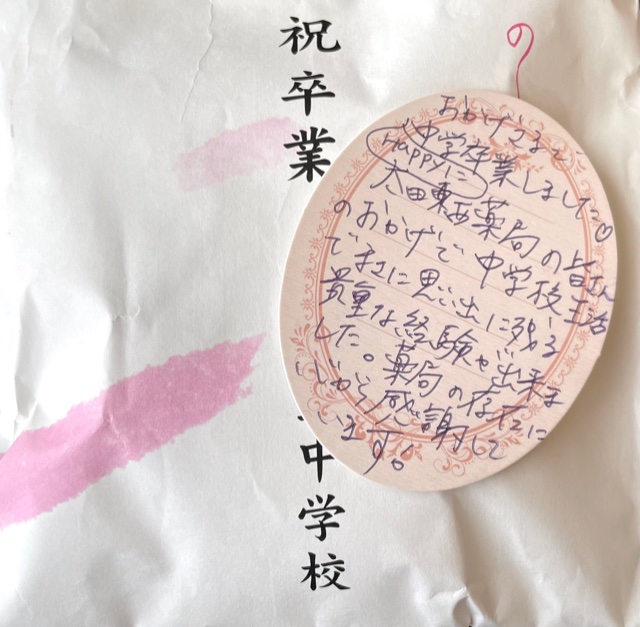 祝卒業
中学校
の
おかげさまで
Happyに
中学卒業しました♡
太田東西薬局の皆さん
のおかげで中学校生活
で主に思い出に残る
貴重な経験が出来ま
した。薬局の存在に
しかと感謝して
います。